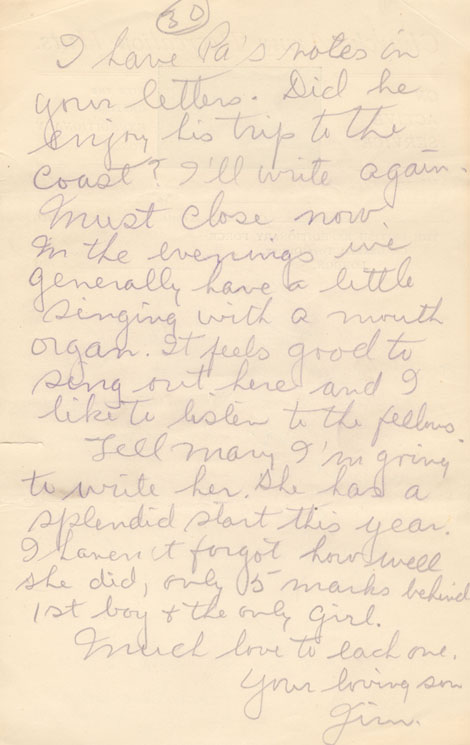 30
I have Pa's notes in
your letters. Did he
enjoy his trip to the
coast? I'll write again.
Must close now.
In the evenings we
generally have a little
singing with a mouth
organ. It feels good to
sing out here and I
like to listen to the fellows.
Tell Mary I'm going
to write her. She has a
splendid start this year.
I haven't forgot how well
she did, only 5 marks behind
1st boy & the only girl.
Much love to each one.
Your loving son
Jim.